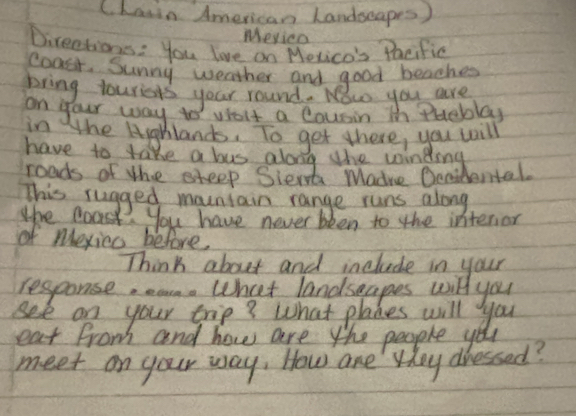 (Latin American Landscapes)
Mexico
Directions: You live on Mexico's Pacific
Coast. Sunny weather and good beaches
bring tourists year round. Now you are
on your way to visit a Cousin in Puebla,
in the Highlands. To get there, you will
have to take a bus along the winding
roads of the steep Sierra Madre Occidental.
This rugged mountain range runs along
the Coast. You have never been to the interior
of Mexico before.
Think about and include in your
response .... What landscapes will you
see on your trip? What places will you
eat from and how are the people you
meet on your way. How are they dressed?